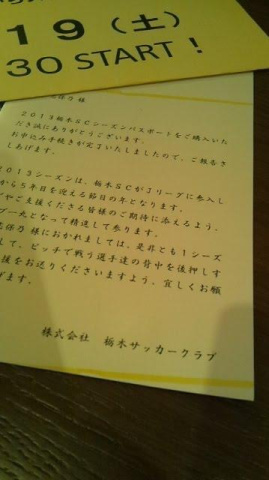 19(土)
30 START!
様
2013栃木SCシーズンパスポートをご購入いた
だき誠にありがとうございます。
お申込み手続きが完了いたしましたので、ご報告さ
しあげます。
2013シーズンは、栃木SCがJリーグに参入し
から5年目を迎える節目の年となります。
ご支援くださる皆様のご期待に添えるよう、
丸となって精進して参ります。
様におかれましては、是非とも1シーズ
して、ピッチで戦う選手達の背中を後押しす
援をお送りくださいますよう、宜しくお願
げます。
株式会社 栃木サッカークラブ